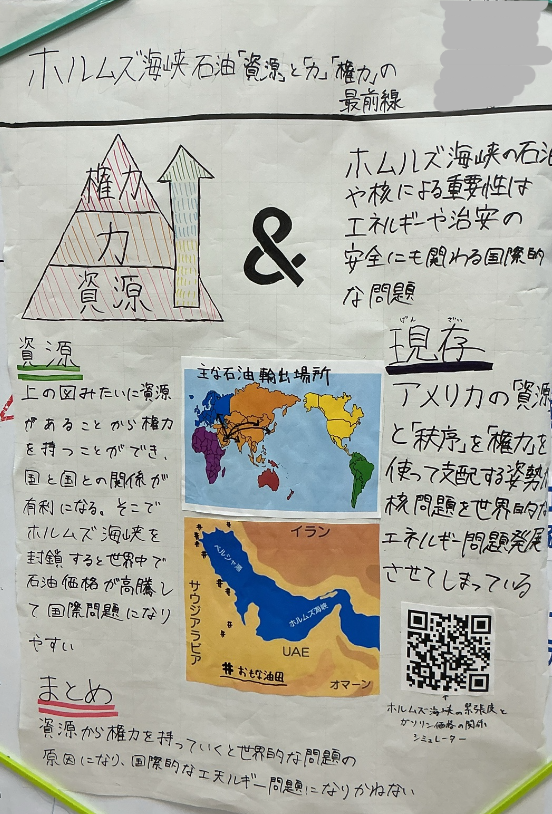 ホルムズ海峡石油「資源」と「力」「権力」の
最前線
権力
力
資源
&
ホムルズ海峡の石油
や核による重要性は
エネルギーや治安の
安全にも関わる国際的
な問題
資源
上の図みたいに資源
があることから権力
を持つことができ、
国と国との関係が
有利になる。そこで
ホルムズ海峡を
封鎖すると世界中で
石油価格が高騰し
て国際問題になり
やすい
主な石油輸出場所
イラン
ペルシャ湾
サウジアラビア
ホルムズ海峡
UAE
おもな油田
オマーン
げん ざい
現存
アメリカの「資源
と「秩序」を「権力」を
使って支配する姿勢
核問題を世界的な
エネルギー問題発展
させてしまっている
ホルムズ海峡の緊張度と
ガソリン価格の関係
シミュレーター
まとめ
資源から権力を持っていくと世界的な問題の
原因になり、国際的なエネルギー問題になりかねない